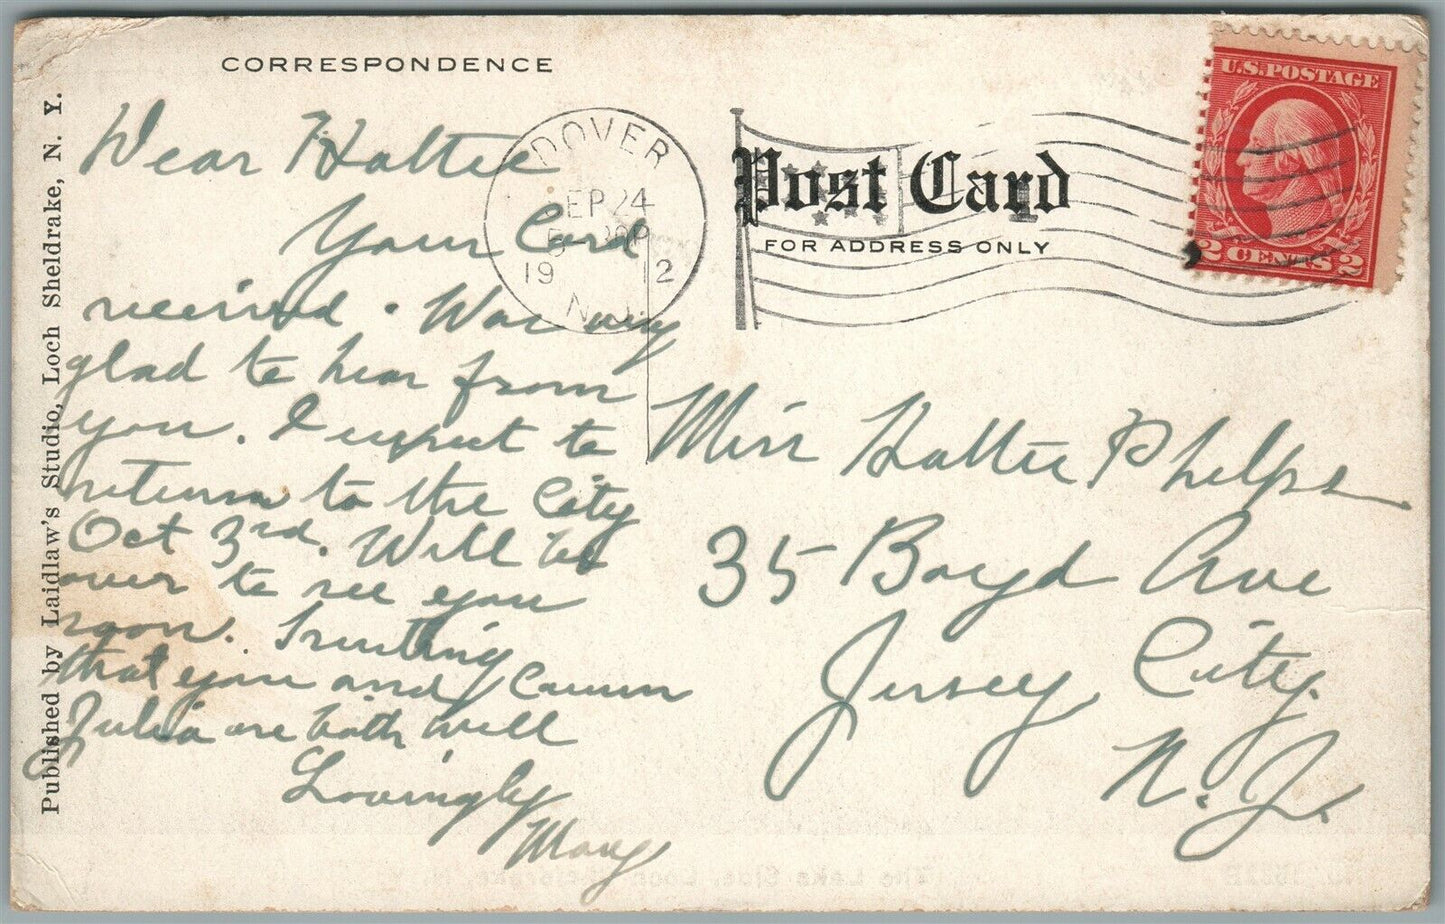 CORRESPONDENCE
Dear Hattie
Your Card
received. Was very
glad to hear from
you. I expect to
return to the City
Oct 3rd. Will be
over to see you
soon. Trusting
that you and Cousin
Julia are both well
Lovingly
Mary
Published by Laidlaw's Studio, Loch Sheldrake, N. Y.
DOVER
SEP 24
19 2
N.J.
Post Card
FOR ADDRESS ONLY
U.S. POSTAGE
2 CENTS 2
Miss Hattie Phelps
35 Boyd Ave
Jersey City.
N. J.